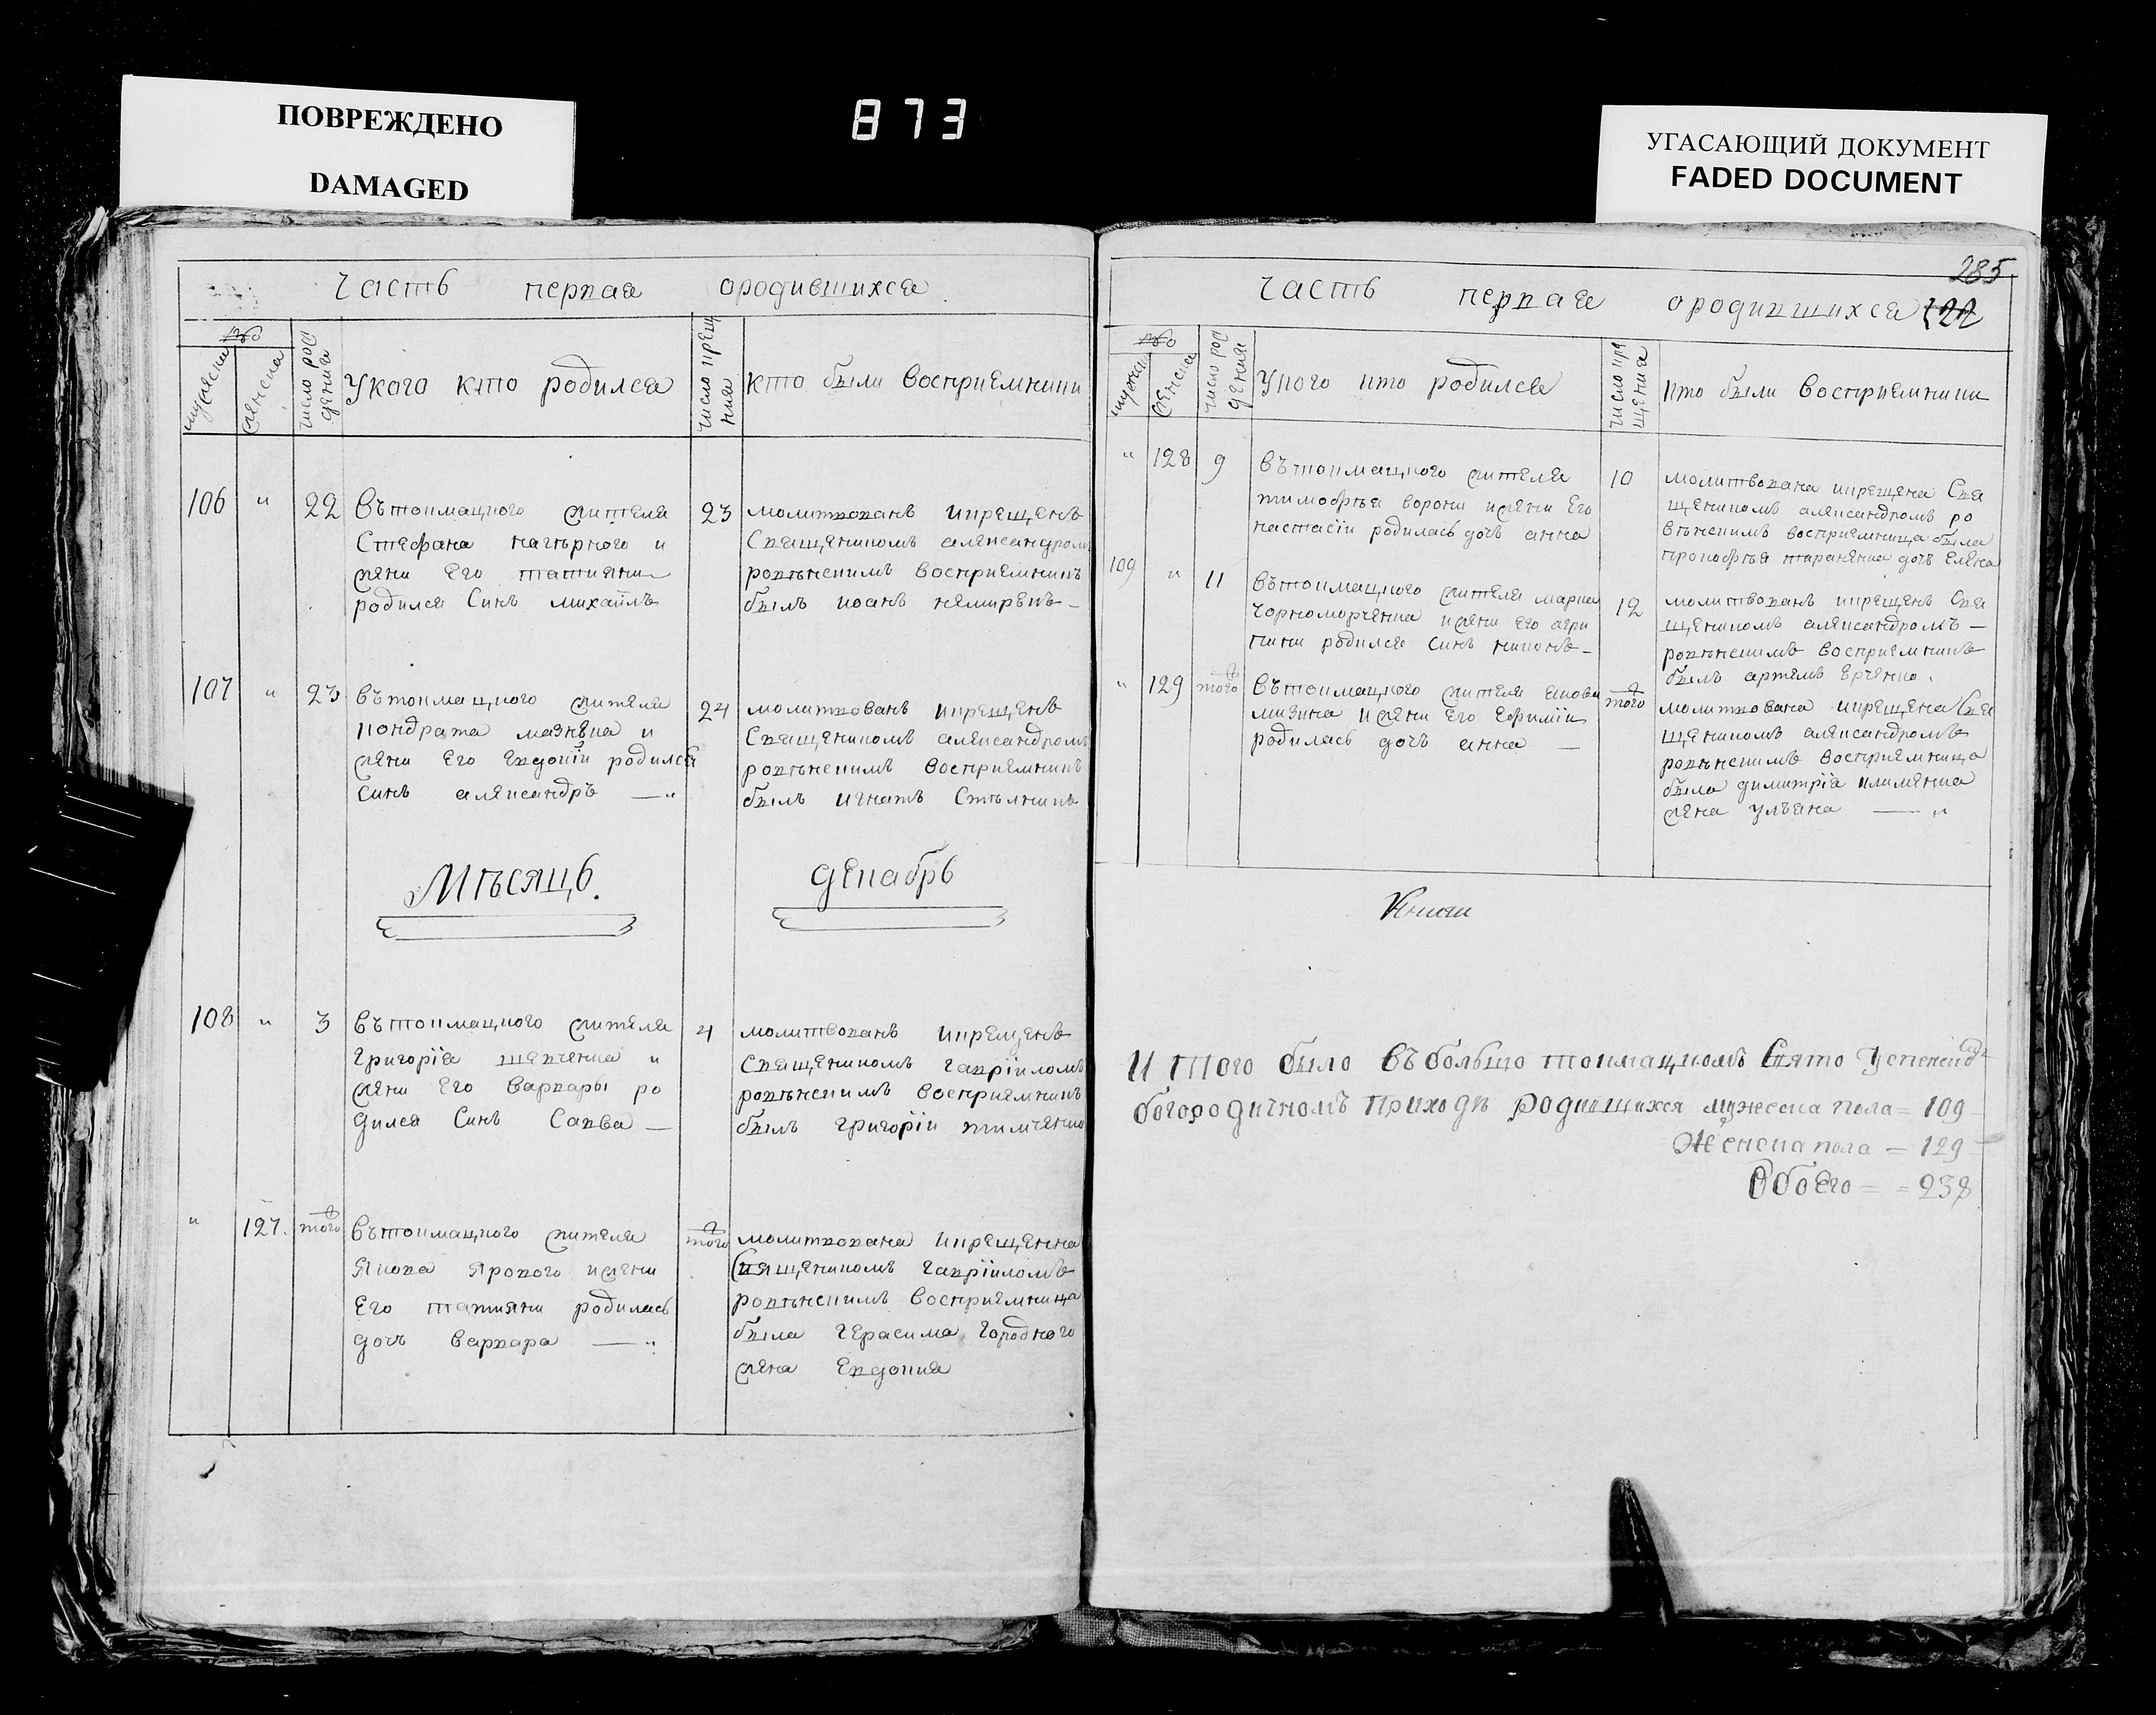 ПОВРЕЖДЕНО
DAMAGED
873
УГАСАЮЩИЙ ДОКУМЕНТ
FADED DOCUMENT
Часть первая ородившихся
число рож
дения
Укого кто родился
число крещ
ния
кто были восприемники
106 " 22 Вътокмацкого жителя
Стефана нагърного и
жени его татияни
родился Синъ михаилъ
23 молитвованъ икрещенъ
Священикомъ александромъ
ровѣнскимъ восприемникъ
былъ иоанъ
107 " 23 вътокмацкого жителя
кондрата и
жени его евдокіи родился
синъ александръ — "
24 молитвованъ икрещенъ
Священикомъ александромъ
ровѣнскимъ восприемникъ
былъ игнатъ
Мѣсяцъ.
декабрь
108 " 3 вътокмацкого жителя
григорія шевченка и
жени его варвары ро
дился Синъ Савва —
4 молитвованъ икрещенъ
Священикомъ гавріиломъ
ровѣнскимъ восприемникъ
былъ григоріи тимченко
" 127. того вътокмацкого жителя
якова ярового ижени
его татияни родилась
дочь варвара — "
того молитвована икрещенна
Священикомъ гавріиломъ
ровѣнскимъ восприемница
была герасима городного
жена Евдокия
285
Часть первая ородившихся 122
мужеска
женска
число рож
дения
Укого кто родился
число кре
щения
кто были восприемники
" 128 9 вътокмацкого жителя
тимофѣя ворони ижени его
настасіи родилась дочь анна
10 молитвована икрещена Свя
щеникомъ александромъ ро
вѣнскимъ восприемница была
прокофѣя тараненка дочь Елена
109 " 11 вътокмацкого жителя марка
Чорноморченка ижени его агри
пини родился синъ никонъ —
12 молитвованъ икрещенъ Свя
щеникомъ александромъ —
ровѣнскимъ восприемникъ
былъ артемъ
" 129 того вътокмацкого жителя якова
мизина ижени его Ефиміи
родилась дочь анна —
того молитвована икрещена Свя
щеникомъ александромъ
ровѣнскимъ восприемница
была димитрія клименка
жена ульяна — "
Итого было въ большо токмацкомъ Свято Успенско
богородичномъ приходѣ родившихся мужеска пола = 109
Женска пола = 129
Обоего = = 238